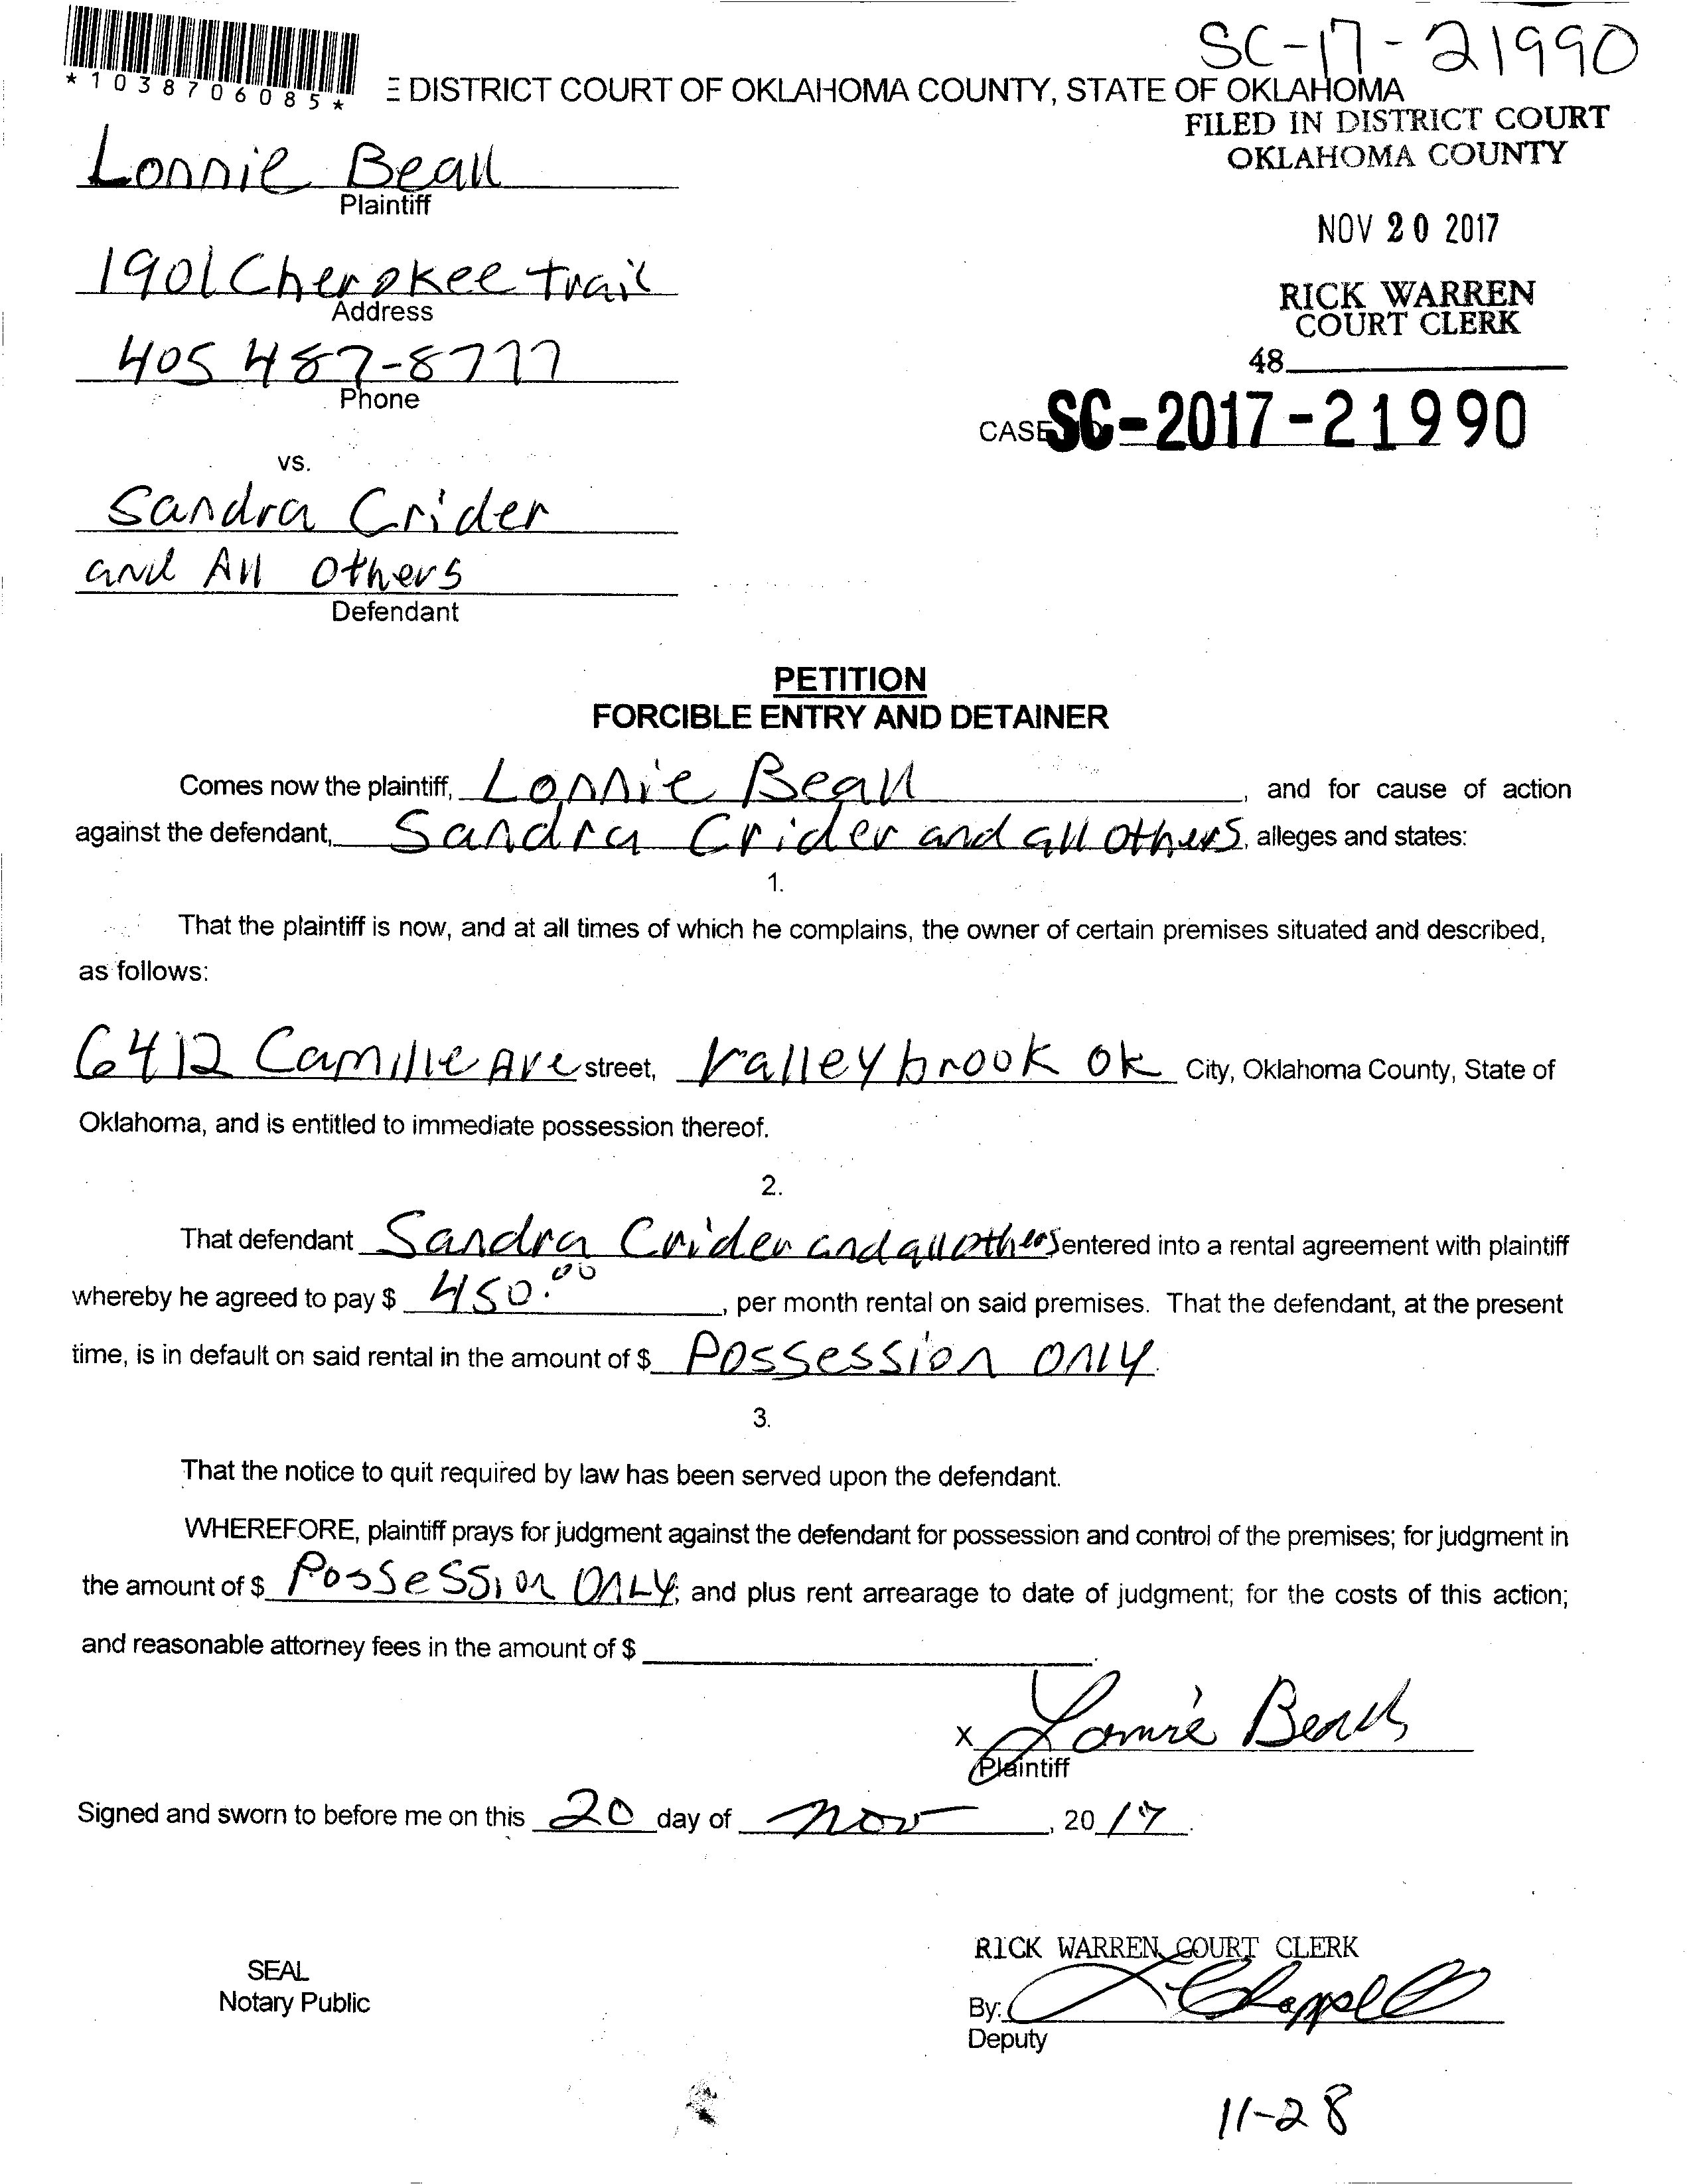 SC-17-21990
*1038706085*
E DISTRICT COURT OF OKLAHOMA COUNTY, STATE OF OKLAHOMA
FILED IN DISTRICT COURT
OKLAHOMA COUNTY
Lonnie Beall
Plaintiff
NOV 20 2017
1901 Cherokee trail
Address
RICK WARREN
COURT CLERK
405 487-8777
Phone
48
CASE SC-2017-21990
vs.
Sandra Crider
and All others
Defendant
PETITION
FORCIBLE ENTRY AND DETAINER
Comes now the plaintiff, Lonnie Beall, and for cause of action
against the defendant, Sandra Crider and all others, alleges and states:
1.
That the plaintiff is now, and at all times of which he complains, the owner of certain premises situated and described,
as follows:
6412 Camille Ave street, Valleybrook ok City, Oklahoma County, State of
Oklahoma, and is entitled to immediate possession thereof.
2.
That defendant Sandra Crider and all others entered into a rental agreement with plaintiff
whereby he agreed to pay $ 450.00, per month rental on said premises. That the defendant, at the present
time, is in default on said rental in the amount of $ Possession only.
3.
That the notice to quit required by law has been served upon the defendant.
WHEREFORE, plaintiff prays for judgment against the defendant for possession and control of the premises; for judgment in
the amount of $ Possession ONLY; and plus rent arrearage to date of judgment; for the costs of this action;
and reasonable attorney fees in the amount of $ .
X Lonnie Beall
Plaintiff
Signed and sworn to before me on this 20 day of Nov, 2017.
RICK WARREN COURT CLERK
SEAL
Notary Public
By: Chappell
Deputy
11-28